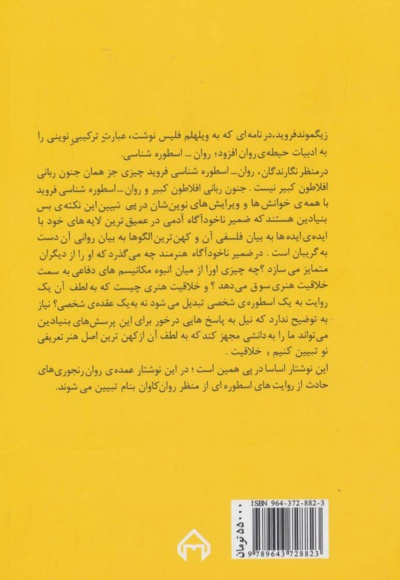 زیگموندفروید،درنامه‌ای که به ویلهلم فلیس نوشت، عبارتِ ترکیبیِ نوینی را
به ادبیات حیطه‌ی روان افزود؛ روان ــ اسطوره شناسی.
درمنظر نگارندگان، روان‌ــ اسطوره شناسی فروید چیزی جز همان جنون ربانی
افلاطون کبیر نیست . جنون ربانی افلاطون کبیر و روان‌ــ اسطوره شناسی فروید
با همه‌ی خوانش‌ها و ویرایش‌های نوین‌شان در‌پی تبیین این نکته‌ی بس
بنیادین هستند که ضمیر ناخودآگاه آدمی در عمیق‌ترین لایه‌های خود با
ایده‌ی ایده‌ها به بیان فلسفی آن و کهن‌ترین الگوها به بیان روانی آن دست
به گریبان است . درضمیر ناخودآگاه هنرمند چه می‌گذرد که او را از دیگران
متمایز می سازد ؟چه چیزی اورا از میان انبوه مکانیسم های دفاعی به سمت
خلاقیت هنری سوق می‌دهد ؟ و خلاقیت هنری چیست که به لطف آن یک
روایت به یک اسطوره‌ی شخصی تبدیل می شود نه به‌یک عقده‌ی شخصی؟ نیاز
به توضیح ندارد که نیل به پاسخ هایی درخور برای این پرسش‌های بنیادین
می‌تواند ما را به‌دانشی مجهز کند که به لطف آن ازکهن ترین اصل هنر تعریفی
نو تبیین کنیم ، خلاقیت .
این نوشتار اساسا درپی همین است ؛ در این نوشتار عمده‌ی روان رنجوری‌های
حادث از روایت های اسطوره ای از منظر روان‌کاوان بنام تبیین می شوند.
ISBN 964-372-882-3
9 789643 728823
۵۵۰۰۰ تومان